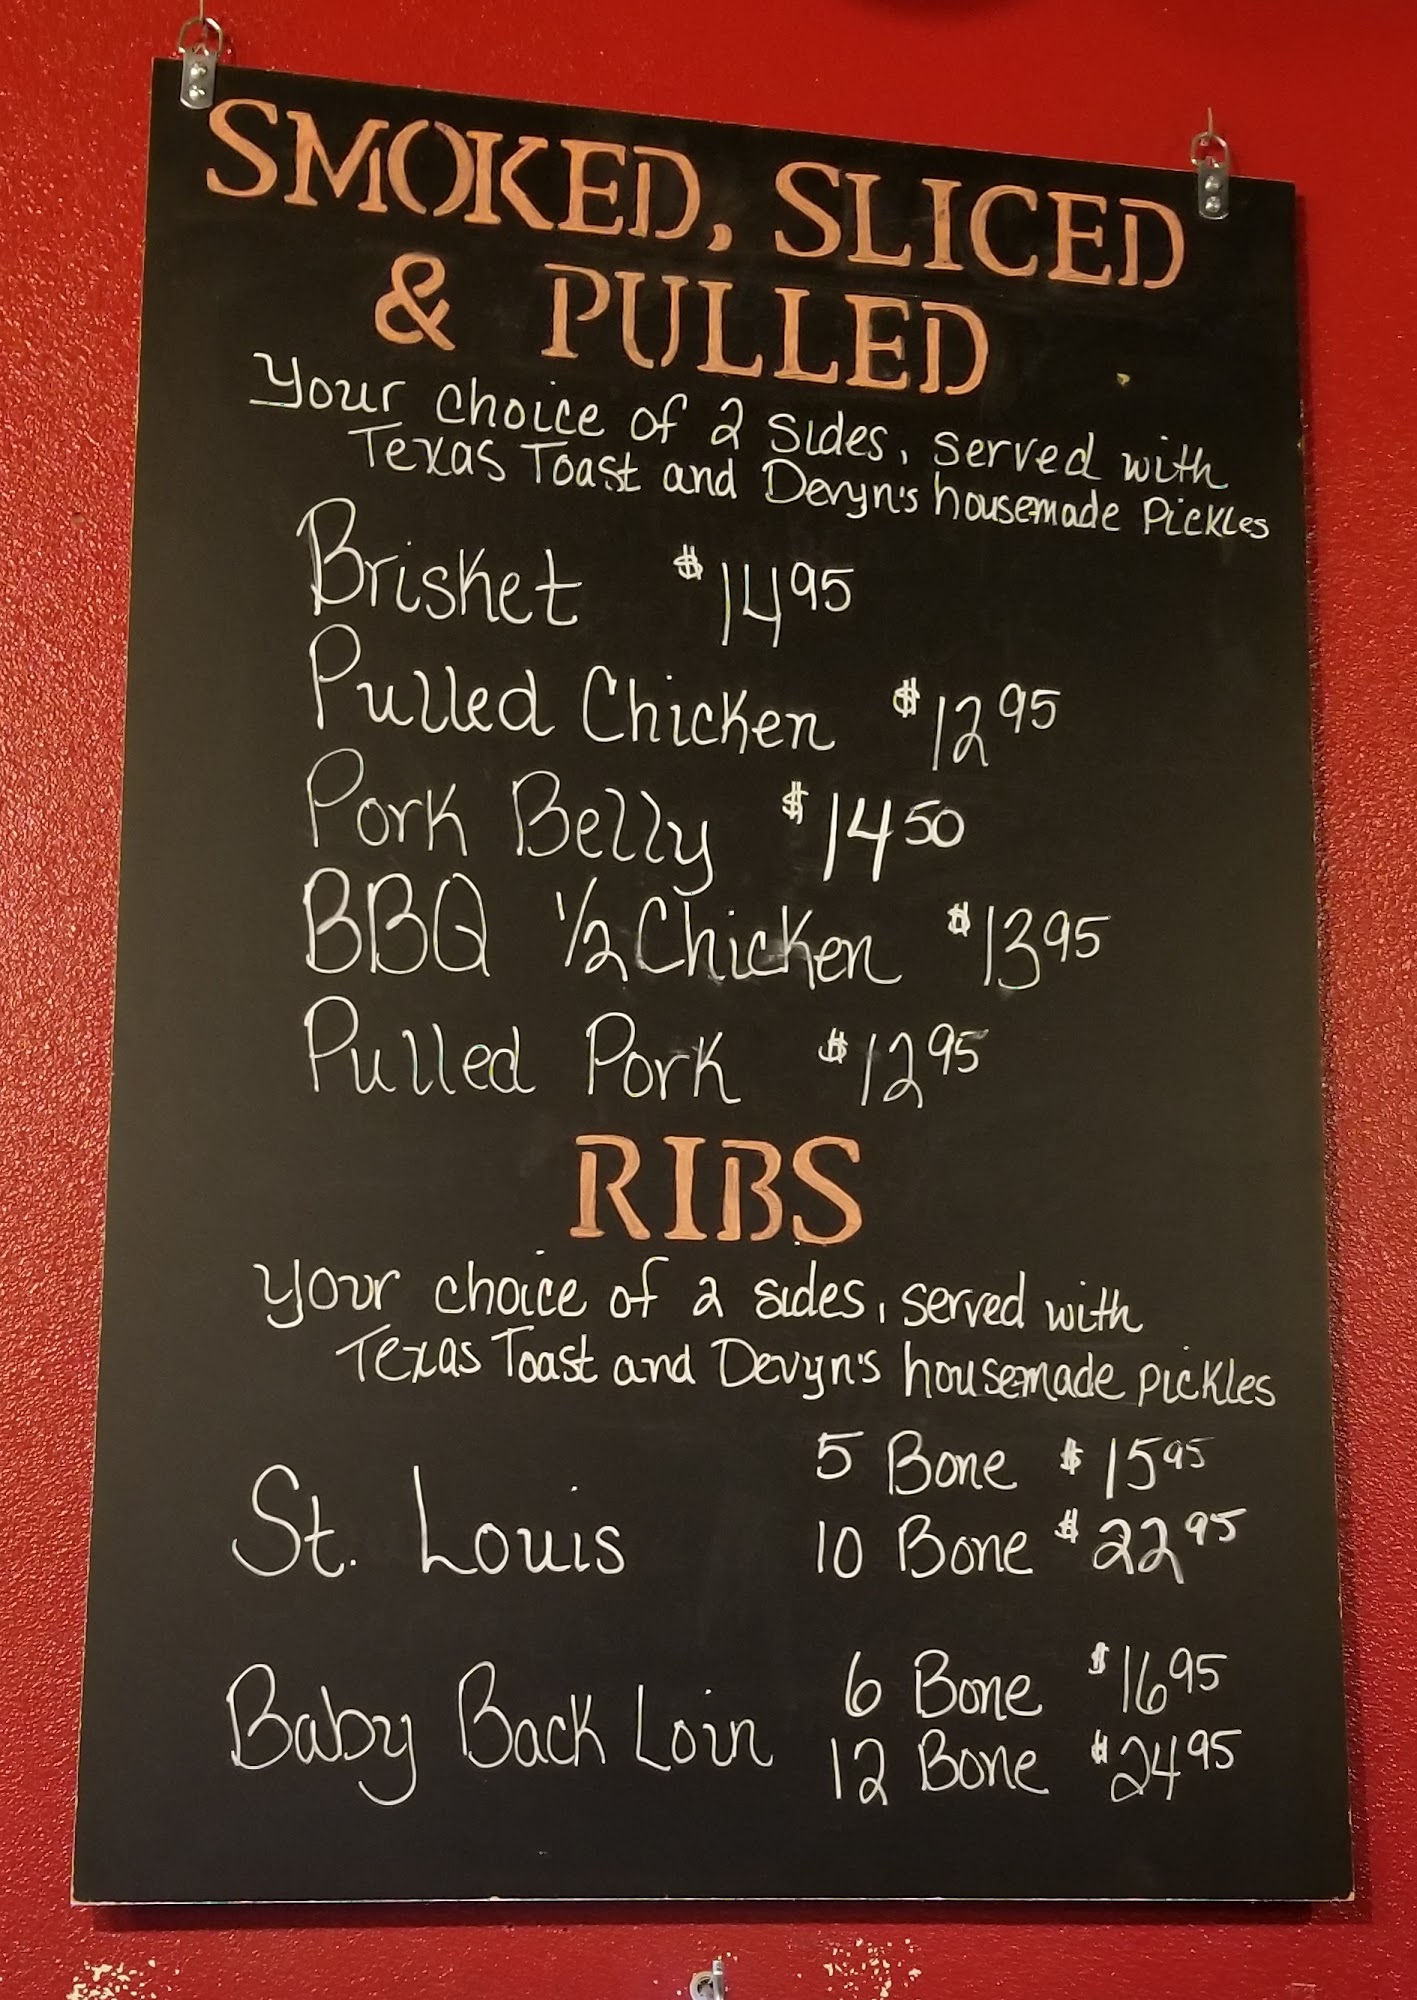 SMOKED, SLICED
& PULLED
Your choice of 2 sides, served with
Texas Toast and Devyn's housemade Pickles
Brisket $14.95
Pulled Chicken $12.95
Pork Belly $14.50
BBQ 1/2 Chicken $13.95
Pulled Pork $12.95
RIBS
Your choice of 2 sides, served with
Texas Toast and Devyn's housemade pickles
5 Bone $15.95
St. Louis
10 Bone $22.95
6 Bone $16.95
Baby Back Loin
12 Bone $24.95